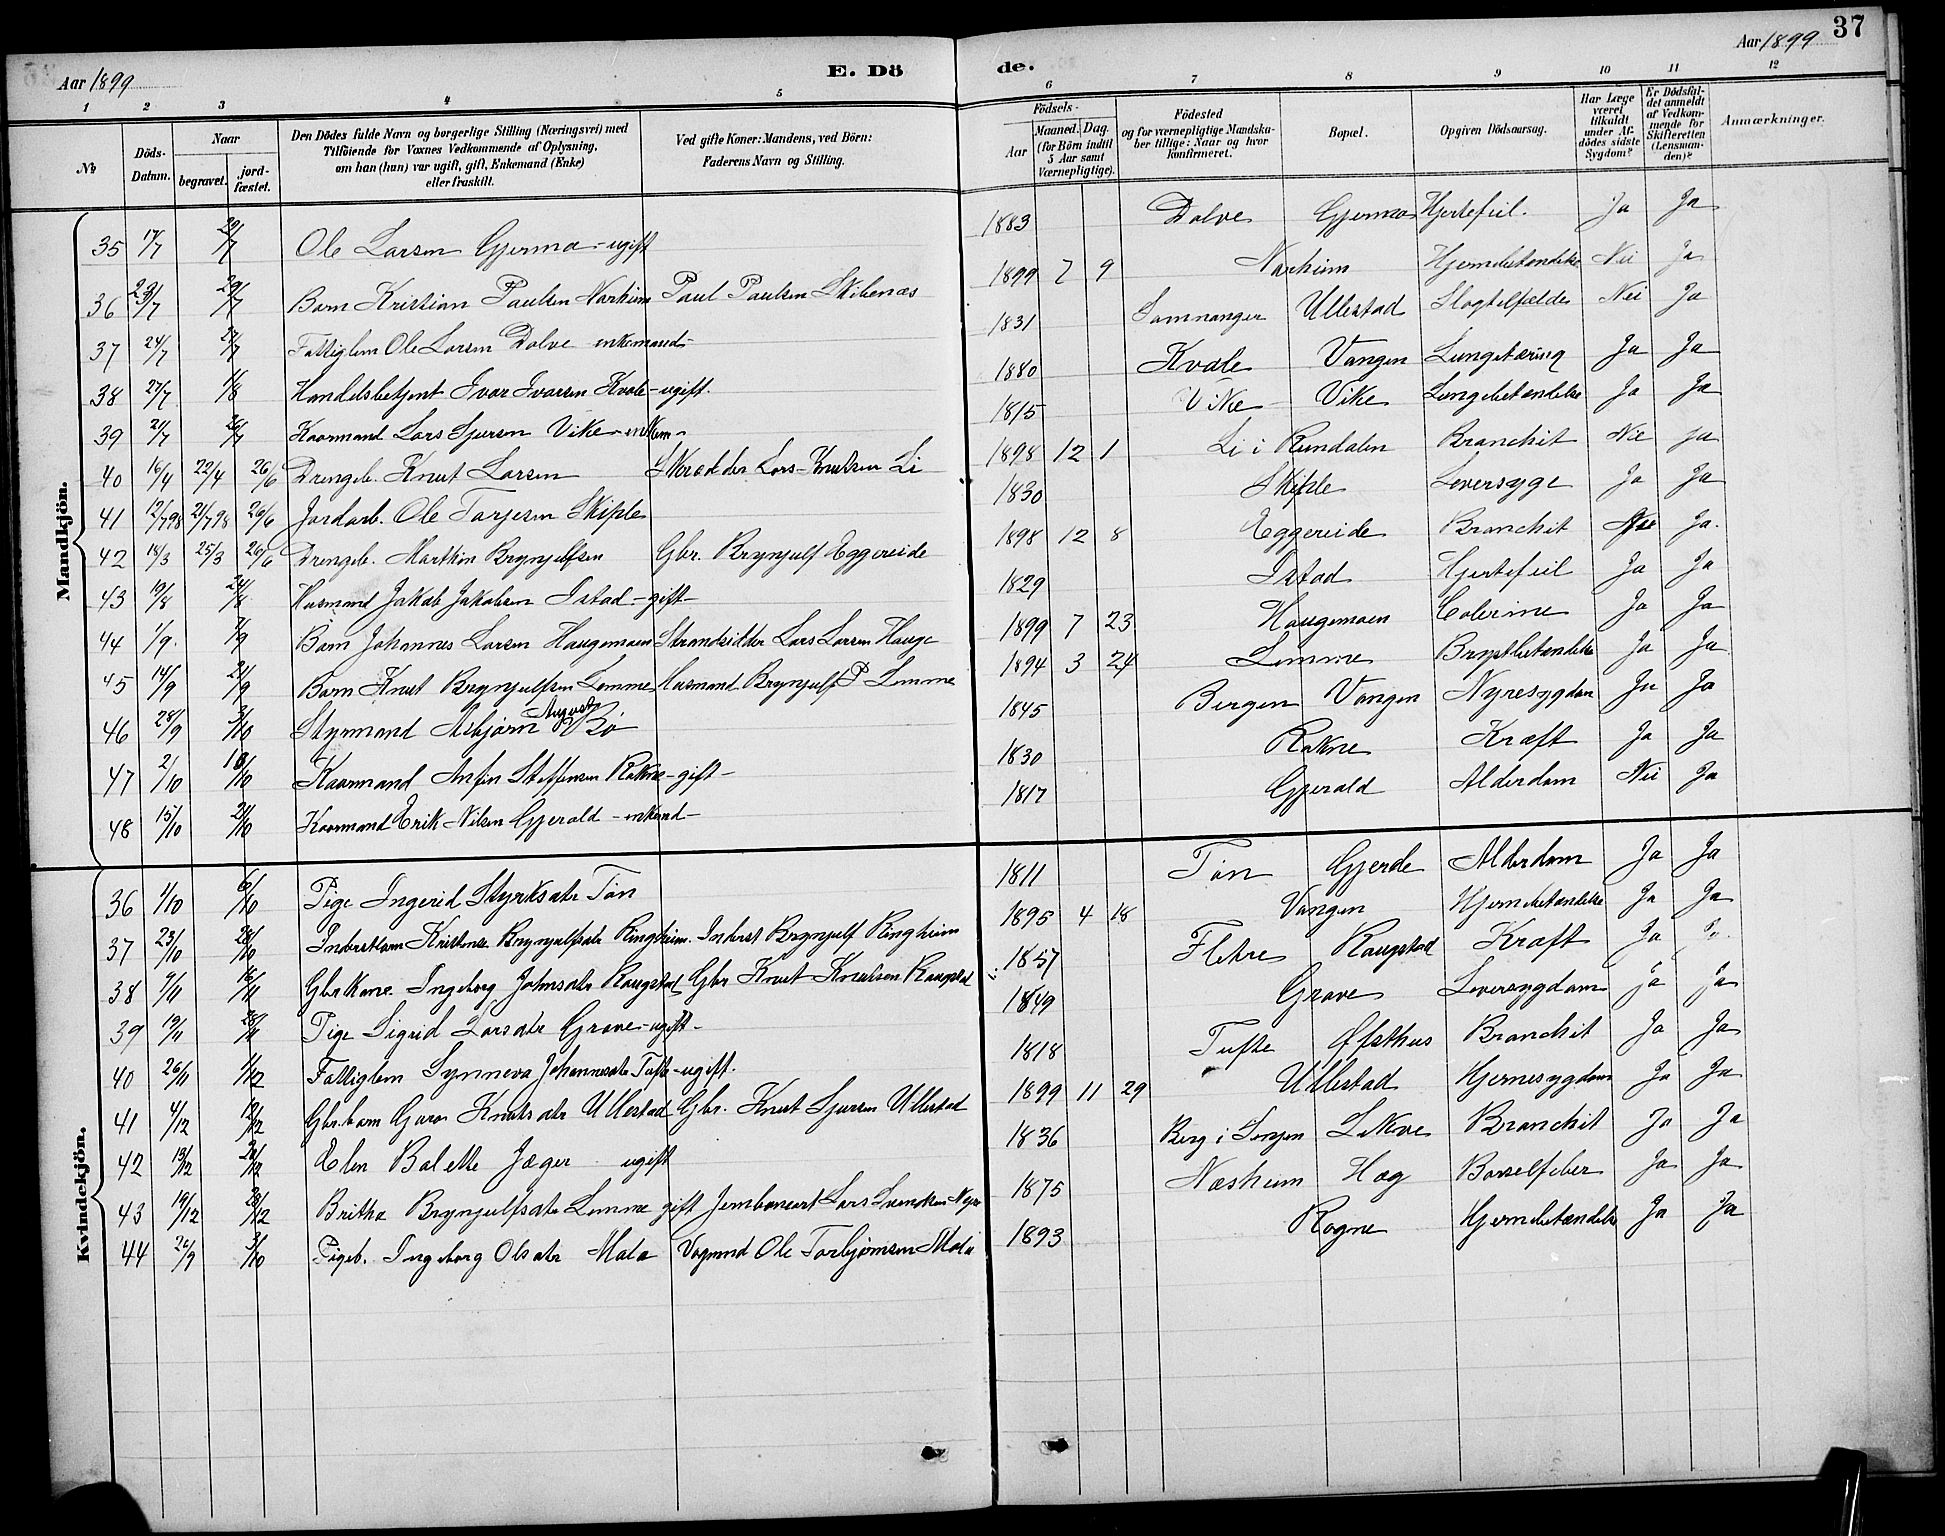 Aar 1899
E. Dö
de.
Aar 1899
37
1 2 3 4 5 6 7 8 9 10 11 12
No
Döds-Datum.
Naar
begravet.
jord-fæstet.
Den Dödes fulde Navn og borgerlige Stilling (Næringsvei) med
Tilföiende for Voxnes Vedkommende af Oplysning,
om han (hun) var ugift, gift, Enkemand (Enke)
eller fraskilt.
Ved gifte Koner: Mandens, ved Börn:
Faderens Navn og Stilling.
Födsels-
Aar
Maaned. Dag.
(for Börn indtil
5 Aar samt
Værnepligtige).
Födested
og for værnepligtige Mandska-
ber tillige: Naar og hvor
konfirmeret.
Bopæl.
Opgiven Dödsaarsag.
Har Læge
været
tilkaldt
under Af-
dödes sidste
Sygdom?
Er Dödsfal-
det anmeldt
af Vedkom-
mende for
Skifteretten
(Lensman-
den)?
Anmærkninger.
Mandkjön.
35 17/7 Ole Larsen Gjerma - ugift 1883 Dolve Gjerma Hjertefeil. Ja Ja
36 23/7 29/7 Barn Kristian Paulsen Norheim Paul Paulsen Skibenæs 1899 7 9 Norheim Hjernebetændelse Nei Ja
37 24/7 Fattiglem Ole Larsen Dolve enkemand- 1831 Samnanger Ullestad Slagtilfælde Nei Ja
38 27/7 1/8 Handelsbetjent Ivar Ivarsen Kvale - ugift. 1880 Kvale Vangen Lungetæring Ja Ja
39 21/7 26/7 Kaarmand Lars Sjursen Vike - enkem - 1815 Vike Vike Lungebetændelse Ja Ja
40 16/4 22/4 26/6 Drengeb. Knut Larsen Skrædder Lars Knutsen Li 1898 12 1 Li i Rundalen Bronchit Nei Ja
41 12/7 98 21/7 98 26/6 Jordarb. Ole Torjesen Skiple 1830 Skiple Leversyge Ja Ja
42 18/3 25/3 26/6 Drengeb. Marthin Brynjulfsen Gbr. Brynjulf Eggereide 1898 12 8 Eggereide Bronchit Nei Ja.
43 19/8 24/8 Husmand Jakob Jakobsen Istad - gift - 1829 Istad Hjertefeil Ja Ja
44 1/9. 7/9 Barn Johannes Larsen Haugamoen Strandsidder Lars Larsen Hauge 1899 7 23 Haugamoen Colerine Ja Ja
45 14/9 21/9 Barn Knut Brynjulfsen Lemme Husmand Brynjulf P Lemme 1894 3 24 Lemme Brystbetændelse Ja Ja
46 28/9 3/10 Styrmand Asbjørn August Bø 1845 Bergen Vangen Nyresygdom Ja Ja
47 2/10 10/10 Kaarmand Anfin Steffensen Rokne - gift - 1830 Rokne Kræft Ja Ja
48 15/10 21/10 Kaarmand Erik Nilsen Gjerald - enkemd - 1817 Gjerald Alderdom Nei Ja
Kvindekjön.
36 1/10 6/10 Pige Ingerid Styrksdtr Tøn 1811 Tøn Gjerde Alderdom Ja Ja
37 23/10 28/10 Inderstbarn Kristense Brynjulfsdtr Ringheim. Inderst Brynjulf Ringheim 1895 4 18 Vangen Hjernebetændelse Ja Ja
38 9/11 16/11 Gbr.kone Ingeborg Johnsdtr Raugstad Gbr Knut Knutsen Raugstad 1857 Fletre Raugstad Kræft Ja Ja
39 19/11 28/11 Pige Sigrid Larsdtr Grove - ugift - 1849 Grove Leversygdom Ja Ja
40 26/11 1/12 Fattiglem Synneva Johannesdtr Tufte - ugift. 1818 Tufte Øfsthus Bronchit Ja Ja
41 4/12 12/12 Gbr.barn Guro Knutsdtr Ullestad Gbr. Knut Sjursen Ullestad 1899 11 29 Ullestad Hjernesygdom Ja Ja
42 13/12 21/12 Elen Bolette Jæger ugift 1836 Berg i Lenjen Lekve Bronchit Ja Ja
43 19/12 28/12 Britha Brynjulfsdtr Lemme gift Jernbanearb Lars Larsen Nyre 1875 Næsheim Hæg Barselfeber Ja Ja
44 26/9 3/10 Pigeb. Ingeborg Olsdtr Mala Vognmd Ole Torbjørnsen Mala 1893 Rogne Hjernebetændelse Ja Ja